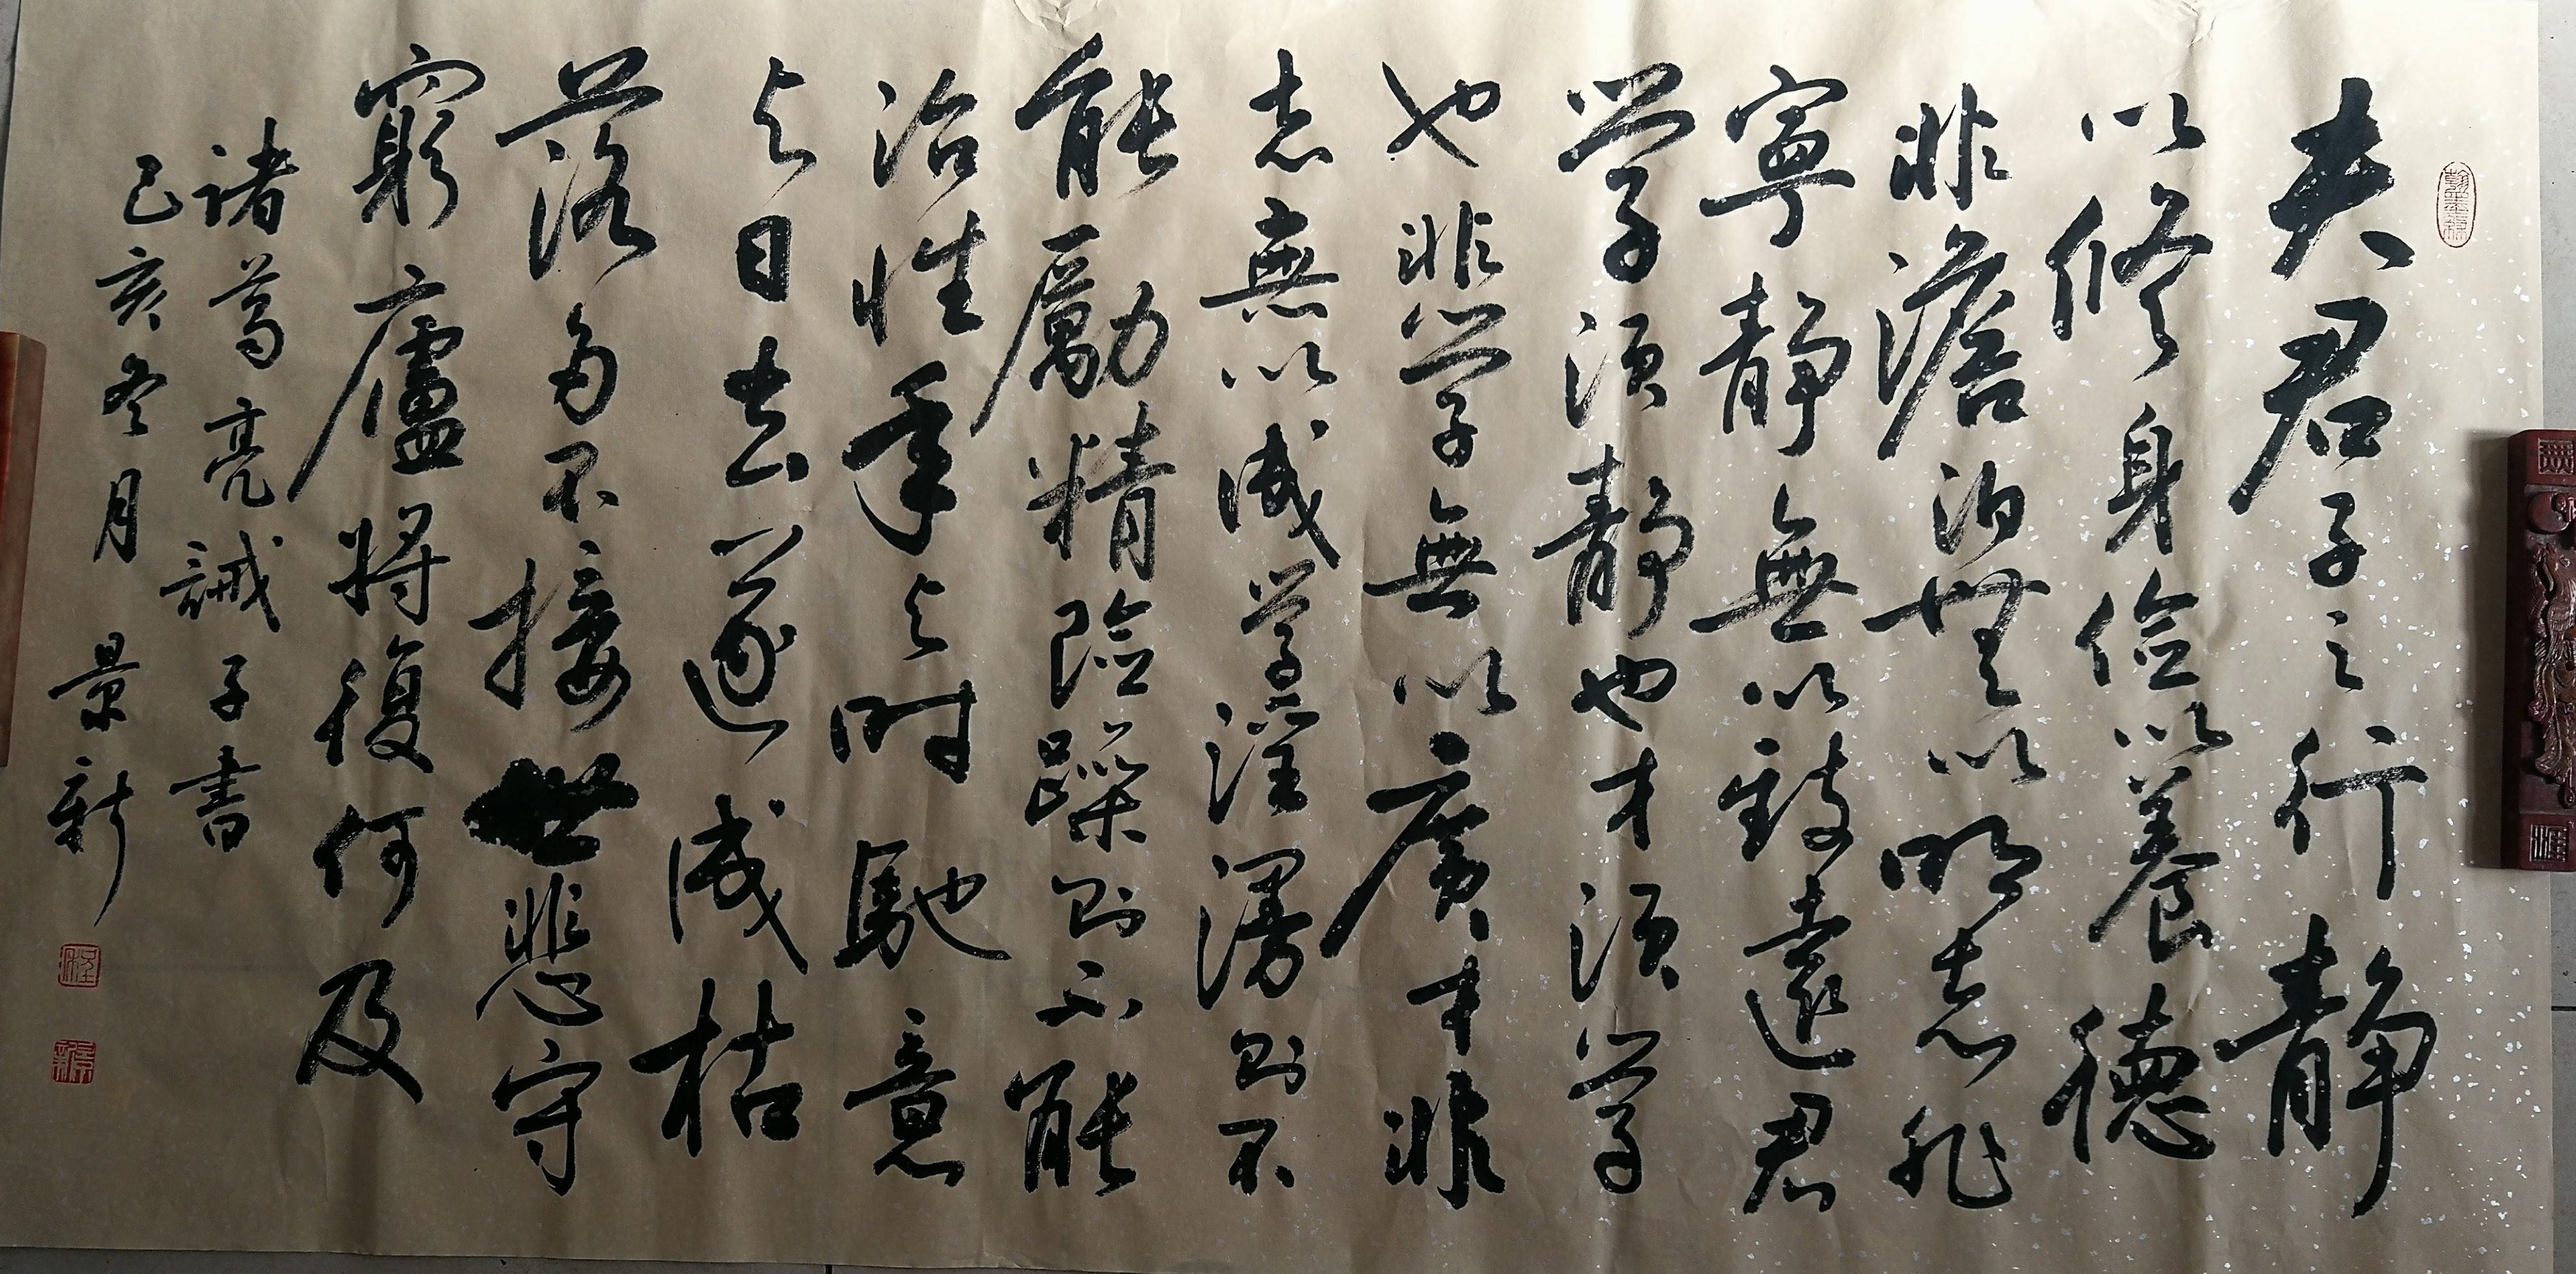 翰墨緣
夫君子之行静
以修身儉以養德
非澹泊無以明志非
寧静無以致遠君
学須静也才須学
也非学無以廣才非
志無以成学淫漫則不
能勵精險躁則不能
治性年与時馳意
与日去遂成枯
落多不接世悲守
窮廬將復何及
諸葛亮誡子書
己亥冬月 景新
景新